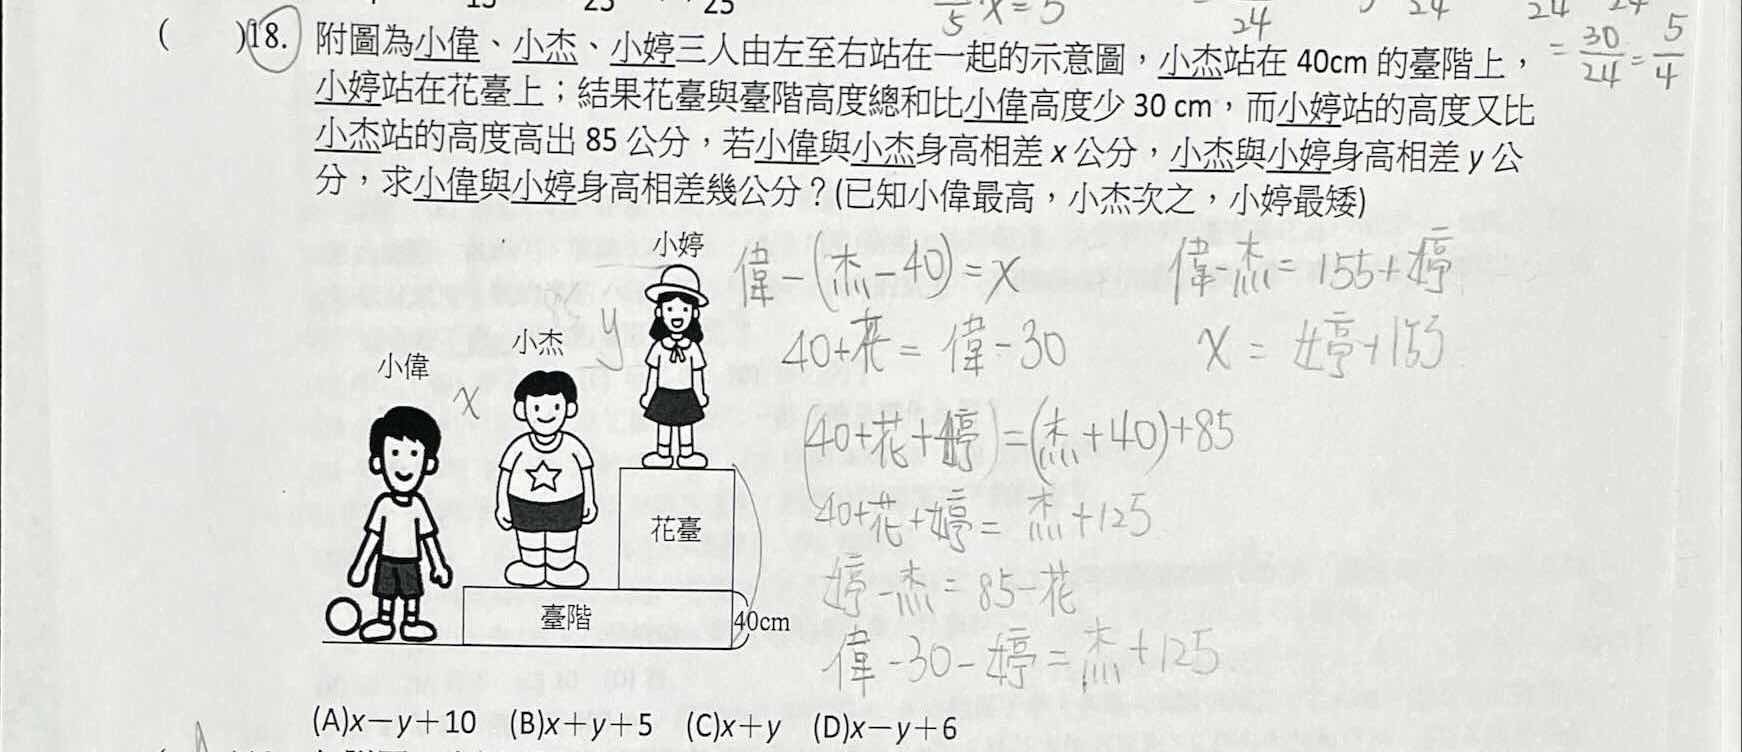 15 23 25
5 x = 5
24
24
24 24
= 30/24 = 5/4
( )18. 附圖為小偉、小杰、小婷三人由左至右站在一起的示意圖，小杰站在 40cm 的臺階上，
小婷站在花臺上；結果花臺與臺階高度總和比小偉高度少 30 cm，而小婷站的高度又比
小杰站的高度高出 85 公分，若小偉與小杰身高相差 x 公分，小杰與小婷身高相差 y 公
分，求小偉與小婷身高相差幾公分？(已知小偉最高，小杰次之，小婷最矮)
小婷
小杰
小偉
x
y
花臺
臺階
40cm
偉-(杰-40)=x
40+花=偉-30
(40+花+婷)=(杰+40)+85
40+花+婷=杰+125
婷-杰=85-花
偉-30-婷=杰+125
偉-杰=155+婷
x=婷+155
(A)x－y＋10 (B)x＋y＋5 (C)x＋y (D)x－y＋6